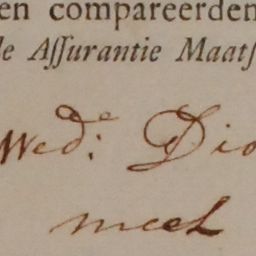 en compareerden
le Aſſurantie Maatſ
Wed.e Dio
meel